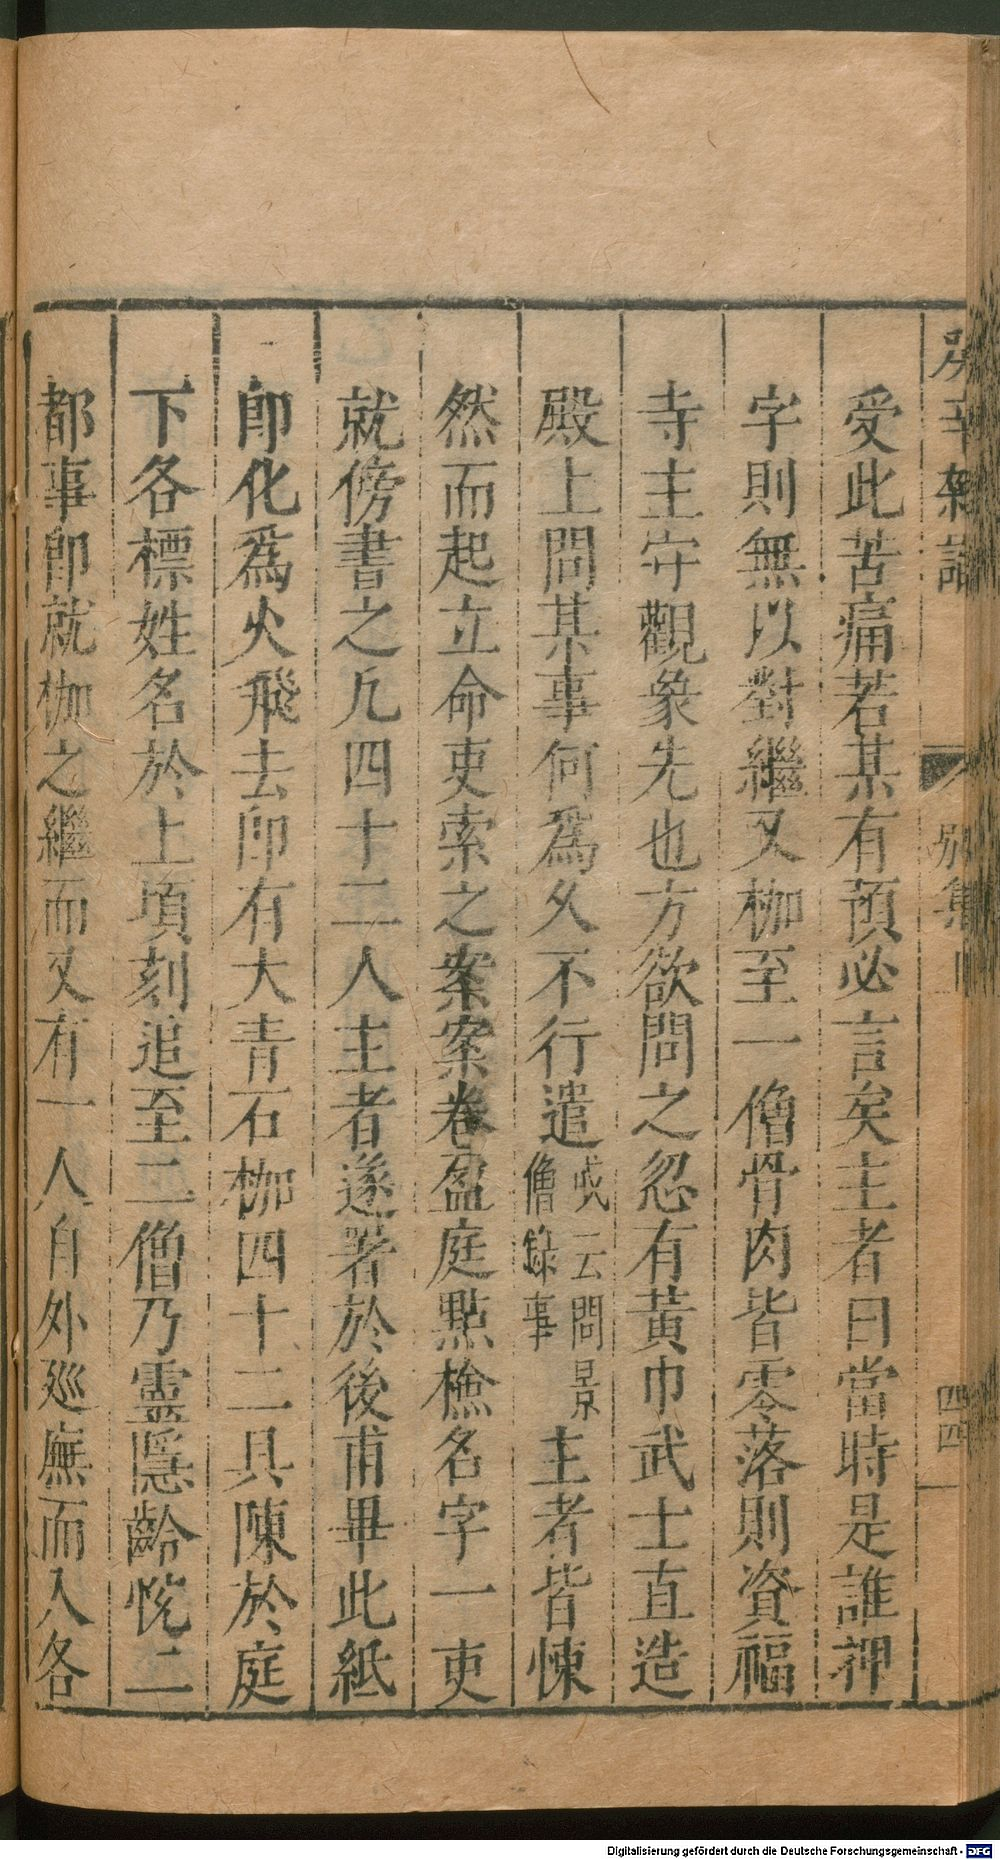 癸辛雜識 別集下 四四
受此苦痛若某有預必言矣主者曰當時是誰押
字則無以對繼又枷至一僧骨肉皆零落則資福
寺主守觀象先也方欲問之忽有黃巾武士直造
殿上問某事何爲久不行遣或云問景僧錄事主者皆悚
然而起立命吏索之案案卷盈庭點檢名字一吏
就傍書之凡四十二人主者遂署於後甫畢此紙
卽化爲火飛去卽有大青石枷四十二具陳於庭
下各標姓名於上頃刻追至二僧乃靈隱齡恢二
都事卽就枷之繼而又有一人自外巡廡而入各
Digitalisierung gefördert durch die Deutsche Forschungsgemeinschaft - DFG